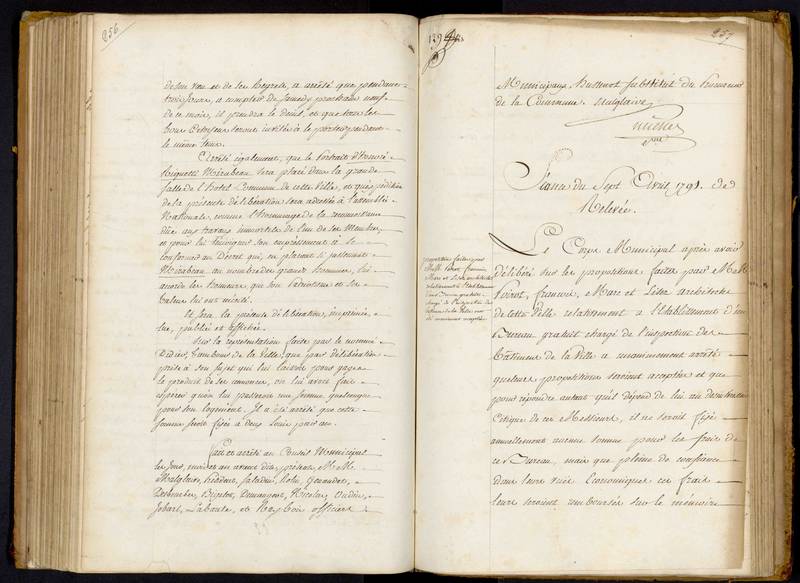 256
de son vœu et de ses Regrets, a arrêté que pendant
trois jours, a compter de samedy prochain neuf
de ce mois, il prendra le deuil, et que tous les
bons Citoyens seront invités à le porter pendant
le même tems.
Arrêté également, que le Portrait d'honoré
Riquetti Mirabeau sera placé dans la grande
salle de l'hotel Commun de cette Ville, et qu'expédition
de la présente délibération sera adressée à l'assemblée
Nationale, comme l'hommage de la reconnaissance
due aux travaux immortels de l'un de ses Membres,
et pour lui témoigner son empressement à se
conformer au Décret qui, en plaçant si justement
Mirabeau au nombre des grands hommes, lui
accorde les honneurs, que son Patriotisme et ses
talens lui ont mérité.
Et sera la présente délibération, imprimée,
lue, publiée et affichée.
Sur la représentation faite par le nommé
Didier, tambour de la Ville, que par délibération
prise à son sujet qui lui laisse pour gages
le produit de ses annonces, on lui avoit fait
espérer qu'on lui passeroit une somme quelconque
pour son logement. Il a été arrêté que cette
somme seroit fixée à deux Louis par an.
Fait et arrêté au Conseil Municipal
les jour, mois et an avant dits, présens, MM.
Malglaive, Saladin, Rolin, Genaudet,
Nicolas, Oudin,
Jobart, Labaute, et officiers
1791
257
Municipaux, substitut du Procureur
de la Commune. Malglaive
Séance du Sept Avril 1791. de
Relevée.
propositions faites par
MM. Poirot, françois,
Marc et architectes
relativement à l'établissement
d'un Bureau gratuit
chargé de l'inspection des
Batimens de la Ville
Le Corps Municipal après avoir
délibéré sur les propositions faites par MM.
Poirot, françois, Marc et architectes
de cette Ville relativement a l'Etablissement d'un
Bureau gratuit chargé de l'inspection des
Batimens de la Ville a unanimement arrêté
que leurs propositions seroient acceptées et que
pour répondre autant qu'il dépend de lui au désintéressement
Civique de ces Messieurs, il ne seroit fixé
annuellement aucune somme pour les frais de
ce Bureau, mais que pleins de confiance
dans leurs vues Economiques ces frais
leur seroient remboursés sur le mémoire